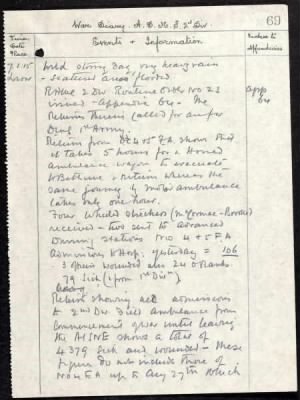 War Diary A.D.M.S. 2nd Div.
69
Time
Date
Place
Events & Information
Index to
Appendices
7.1.15
Wild stormy day very heavy rain
- scattered areas flooded.
RAMC 2 Div Routine Order No 23
app
issued - Appendix 64 - The
64
Returns therein called for are for
DMS 1st Army.
Return from OC 4 & 5 FA shows that
it takes 5 hours for a Horsed
Ambulance wagon to evacuate
to Bethune & return whereas the
same journey by motor ambulance
takes only one hour.
Four Wheeled stretchers
received - two sent to advanced
Dressing Stations No 4 & 5 FA
Admissions to Hosp. yesterday = 106
3 Officers wounded also 24 O. Ranks
79 Sick (1 from 1st Div)
Return showing all admissions
to 2nd Div. Field Ambulances from
commencement of war until leaving
the AISNE shows a total of
4379 sick and wounded - these
figures do not include those of
No 4 FA up to Aug 27th which